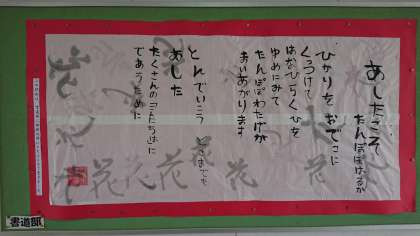 あしたこそ
たんぽぽはるか
ひかりを おでこに
くっつけて
はなひらくひを
ゆめにみて
たんぽぽわたげが
まいあがります
とんでいこう どこまでも
あした
たくさんの「こんにちは」に
であうために
花
花
花
花
花
花
書道部